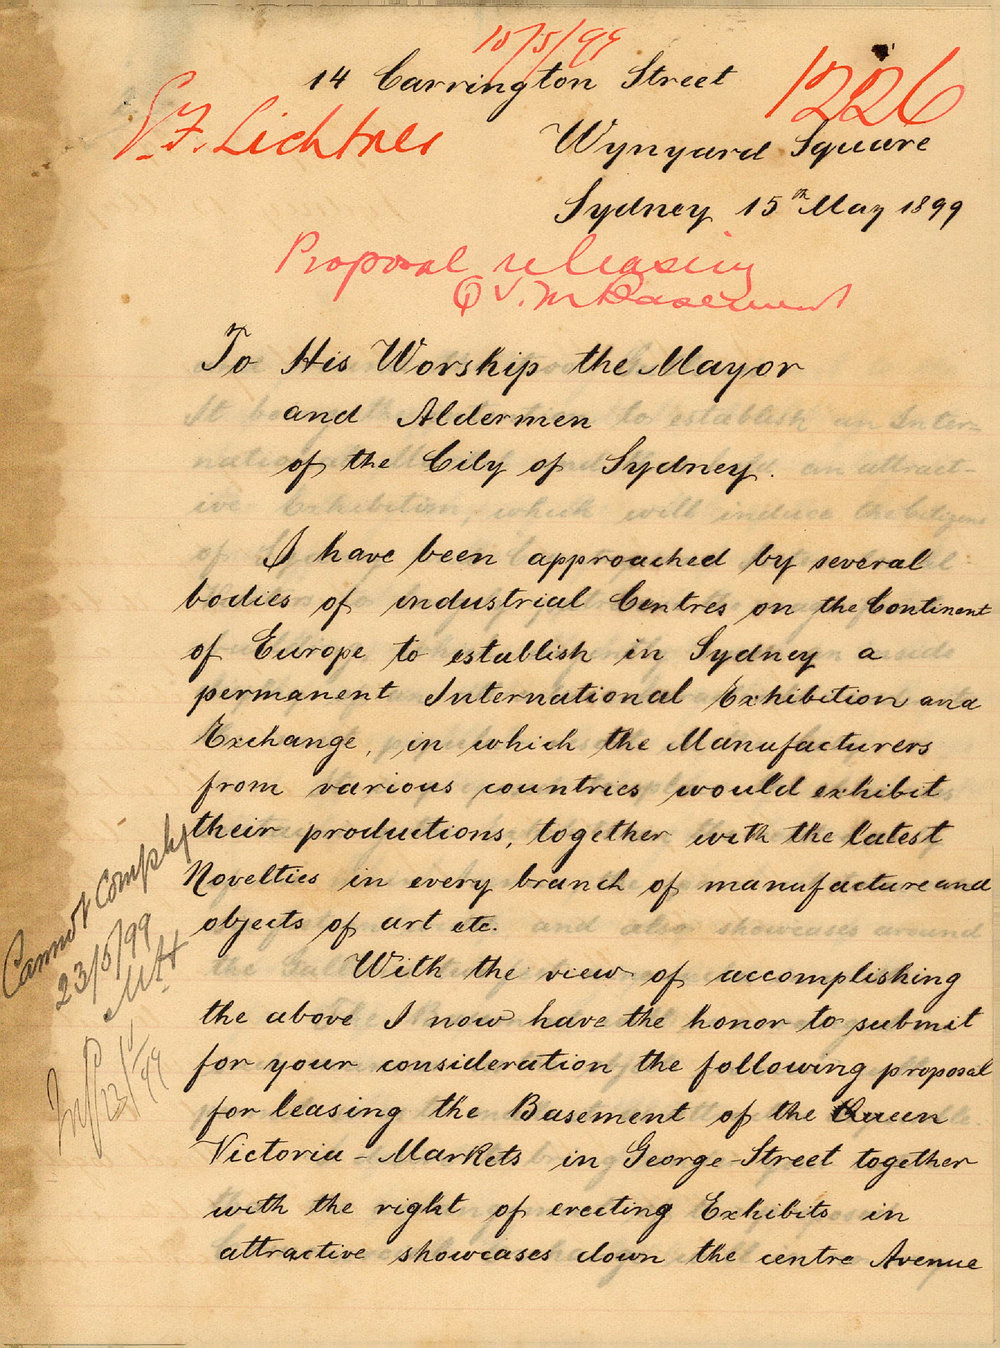 15/5/99
14 Carrington Street
1226
V. F. Lichtner
Wynyard Square
Sydney 15th May 1899
Proposal re leasing
Q V. M Basement
To His Worship the Mayor
and Aldermen
of the City of Sydney.
I have been approached by several
bodies of industrial Centres on the Continent
of Europe to establish in Sydney a
permanent International Exhibition and
Exchange, in which the Manufacturers
from various countries would exhibit
their productions, together with the latest
Novelties in every branch of manufacture and
objects of art etc.
With the view of accomplishing
the above I now have the honor to submit
for your consideration the following proposal
for leasing the Basement of the Queen
Victoria-Markets in George-Street together
with the right of erecting Exhibits in
attractive showcases down the centre Avenue
Cannot Comply
23/5/99